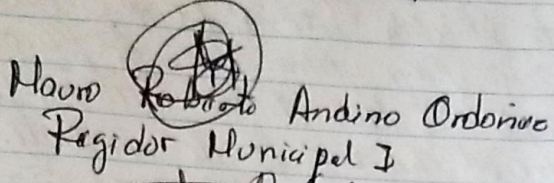 Mauro Roberto Andino Ordonive
Regidor Municipal I